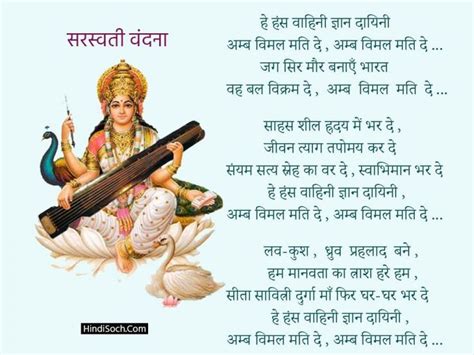 सरस्वती वंदना
हे हंस वाहिनी ज्ञान दायिनी
अम्ब विमल मति दे , अम्ब विमल मति दे ...
जग सिर मौर बनाएँ भारत
वह बल विक्रम दे , अम्ब विमल मति दे ...
साहस शील ह्रदय में भर दे ,
जीवन त्याग तपोमय कर दे
संयम सत्य स्नेह का वर दे , स्वाभिमान भर दे
हे हंस वाहिनी ज्ञान दायिनी ,
अम्ब विमल मति दे , अम्ब विमल मति दे ...
लव-कुश , ध्रुव प्रहलाद बने ,
हम मानवता का त्राश हरे हम ,
सीता सावित्री दुर्गा माँ फिर घर-घर भर दे
हे हंस वाहिनी ज्ञान दायिनी ,
अम्ब विमल मति दे , अम्ब विमल मति दे ...
HindiSoch.Com